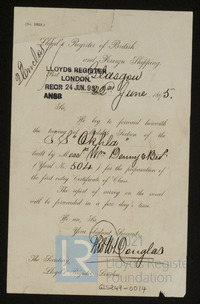 Lloyd's Register of British
and Foreign Shipping.
LLOYDS REGISTER
LONDON.
RECR 24 JUN. 95
ANSR
Glasgow
22nd June 1895.
Sir,
We beg to forward herewith
the tracing of Midship Section of the
S.S. "
built by Messrs Wm Denny & Bros
(Yard No. 504) for the preparation of
the first entry Certificate of Class.
The report of survey on the vessel
will be forwarded in a few day's time.
We are, Sir,
Your obedient Servants,
Douglas
The Secretary
Lloyd's Register
London
Lloyd's Register
Foundation
2021